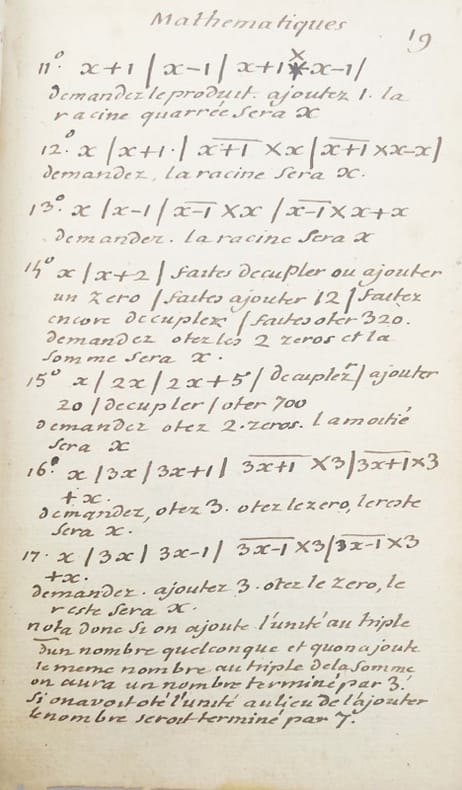 Mathematiques
19
11° x+1 | x-1 | x+1 × x-1 |
demandez le produit. ajoutez 1. la
racine quarrée sera x
12° x | x+1. | x+1 × x | x+1 × x-x |
demandez, la racine sera x.
13° x | x-1 | x-1 × x | x-1 × x + x
demandez. la racine sera x
14° x | x+2 | faites decupler ou ajouter
un zero | faites ajouter 12 | faitez
encore decuplez | faites oter 320.
demandez otez les 2 zeros et la
somme sera x.
15° x | 2x | 2x+5 | decuplezr | ajouter
20 | decupler | oter 700
demandez otez 2. zeros. la moitié
sera x
16° x | 3x | 3x+1 | 3x+1 ×3 | 3x+1 ×3
+x.
demandez, otez 3. otez le zero, le reste
sera x.
17. x | 3x | 3x-1 | 3x-1 ×3 | 3x-1 ×3
+x.
demandez. ajoutez 3. otez le zero, le
reste sera x.
nota donc si on ajoute l'unité au triple
dun nombre quelconque et quon ajoute
le meme nombre au triple de la somme
on aura un nombre terminé par 3.
si on avoit oté l'unité au lieu de l'ajouter
le nombre seroit terminé par 7.